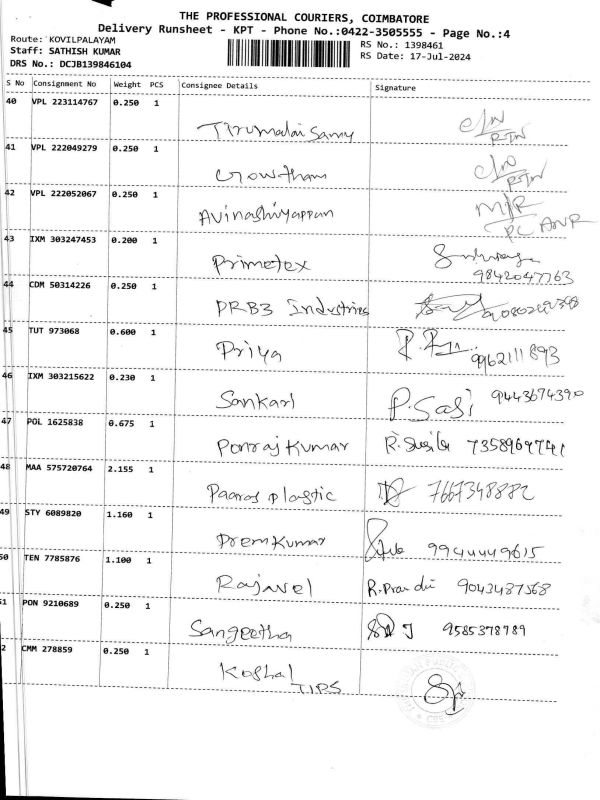 THE PROFESSIONAL COURIERS, COIMBATORE
Delivery Runsheet - KPT - Phone No.:0422-3505555 - Page No.:4
Route: KOVILPALAYAM
Staff: SATHISH KUMAR
DRS No.: DCJB139846104
RS No.: 1398461
RS Date: 17-Jul-2024
S No Consignment No Weight PCS Consignee Details Signature
40 VPL 223114767 0.250 1
Tirumalai Samy C/N RTN
41 VPL 222049279 0.250 1
Gowtham C/N RTN
42 VPL 222052067 0.250 1
Avinashiyappan
43 IXM 303247453 0.200 1
Primetex 9842047763
44 CDM 50314226 0.250 1
PRB3 Industries
45 TUT 973068 0.600 1
Priya 9962111893
46 IXM 303215622 0.230 1
Sankarl P. Sasi 9443674390
47 POL 1625838 0.675 1
Ponraj Kumar R. Susila
48 MAA 575720764 2.155 1
Paaras plastic 7667348882
49 STY 6089820 1.160 1
Prem Kumar 9944449615
50 TEN 7785876 1.100 1
Rajavel 9043487568
51 PON 9210689 0.250 1
Sangeetha 9585378989
2 CMM 278859 0.250 1
Koshal
TIPS